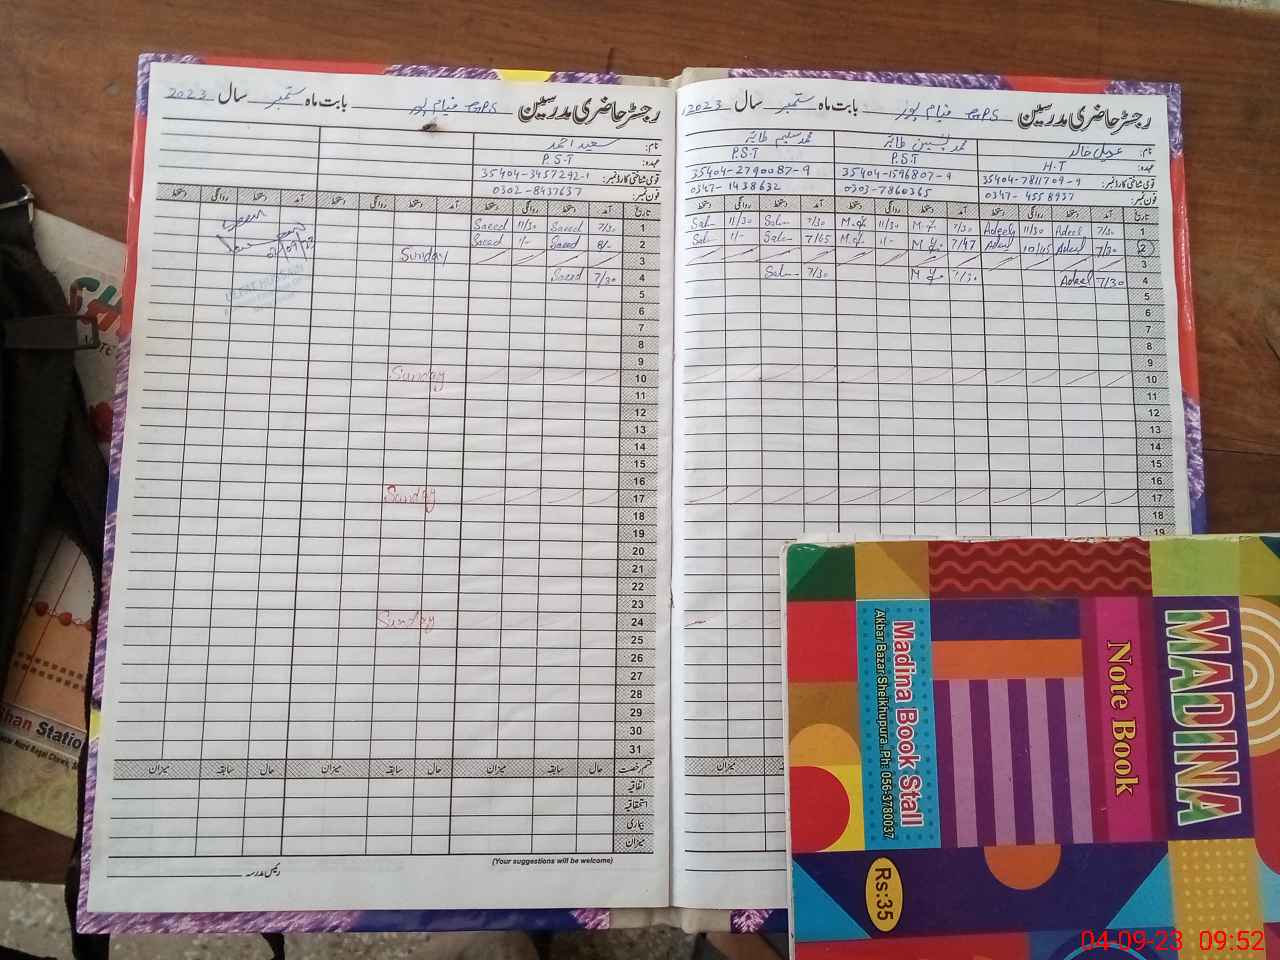 رجسٹر حاضری مدرسین GPS قیام پور بابت ماہ ستمبر سال 2023
نام: عدیل خالد محمد یٰسین طاہر محمد سلیم طاہر
عہدہ: H.T P.S.T P.S.T
قومی شناختی کارڈ نمبر: 35404-7811709-9 35404-1596807-9 35404-2790087-9
فون نمبر: 0347-4558937 0303-7860365 0347-1438632
تاریخ آمد دستخط روانگی دستخط آمد دستخط روانگی دستخط آمد دستخط روانگی دستخط
1 7/30 Adeel 11/30 Adeel 7/30 M.Y 11/30 M.Y 7/30 Salim 11/30 Salim
2 7/30 Adeel 10/15 Adeel 7/47 M.Y 1/- M.Y 7/65 Salim 1/- Salim
3
4 7/30 Adeel 7/30 M.Y 7/30 Salim
5
6
7
8
9
10
11
12
13
14
15
16
17
18
19
میزان
رجسٹر حاضری مدرسین GPS قیام پور بابت ماہ ستمبر سال 2023
نام: سعید احمد
عہدہ: P.S.T
قومی شناختی کارڈ نمبر: 35404-3457292-1
فون نمبر: 0302-8437637
تاریخ آمد دستخط روانگی دستخط آمد دستخط روانگی دستخط آمد دستخط روانگی دستخط
1 7/30 Saeed 11/30 Saeed
2 8/- Saeed 1/- Saeed
3 Sunday
4 7/30 Saeed
5
6
7
8
9
10 Sunday
11
12
13
14
15
16
17 Sunday
18
19
20
21
22
23
24 Sunday
25
26
27
28
29
30
31
قسم رخصت حال سابقہ میزان حال سابقہ میزان حال سابقہ میزان
اتفاقیہ
استحقاقیہ
بیماری
میزان
(Your suggestions will be welcome)
رئیس مدرسہ
MADINA
Note Book
Madina Book Stall
Akbar Bazar Sheikhupura. Ph: 056-3780037
Rs:35
04-09-23 09:52